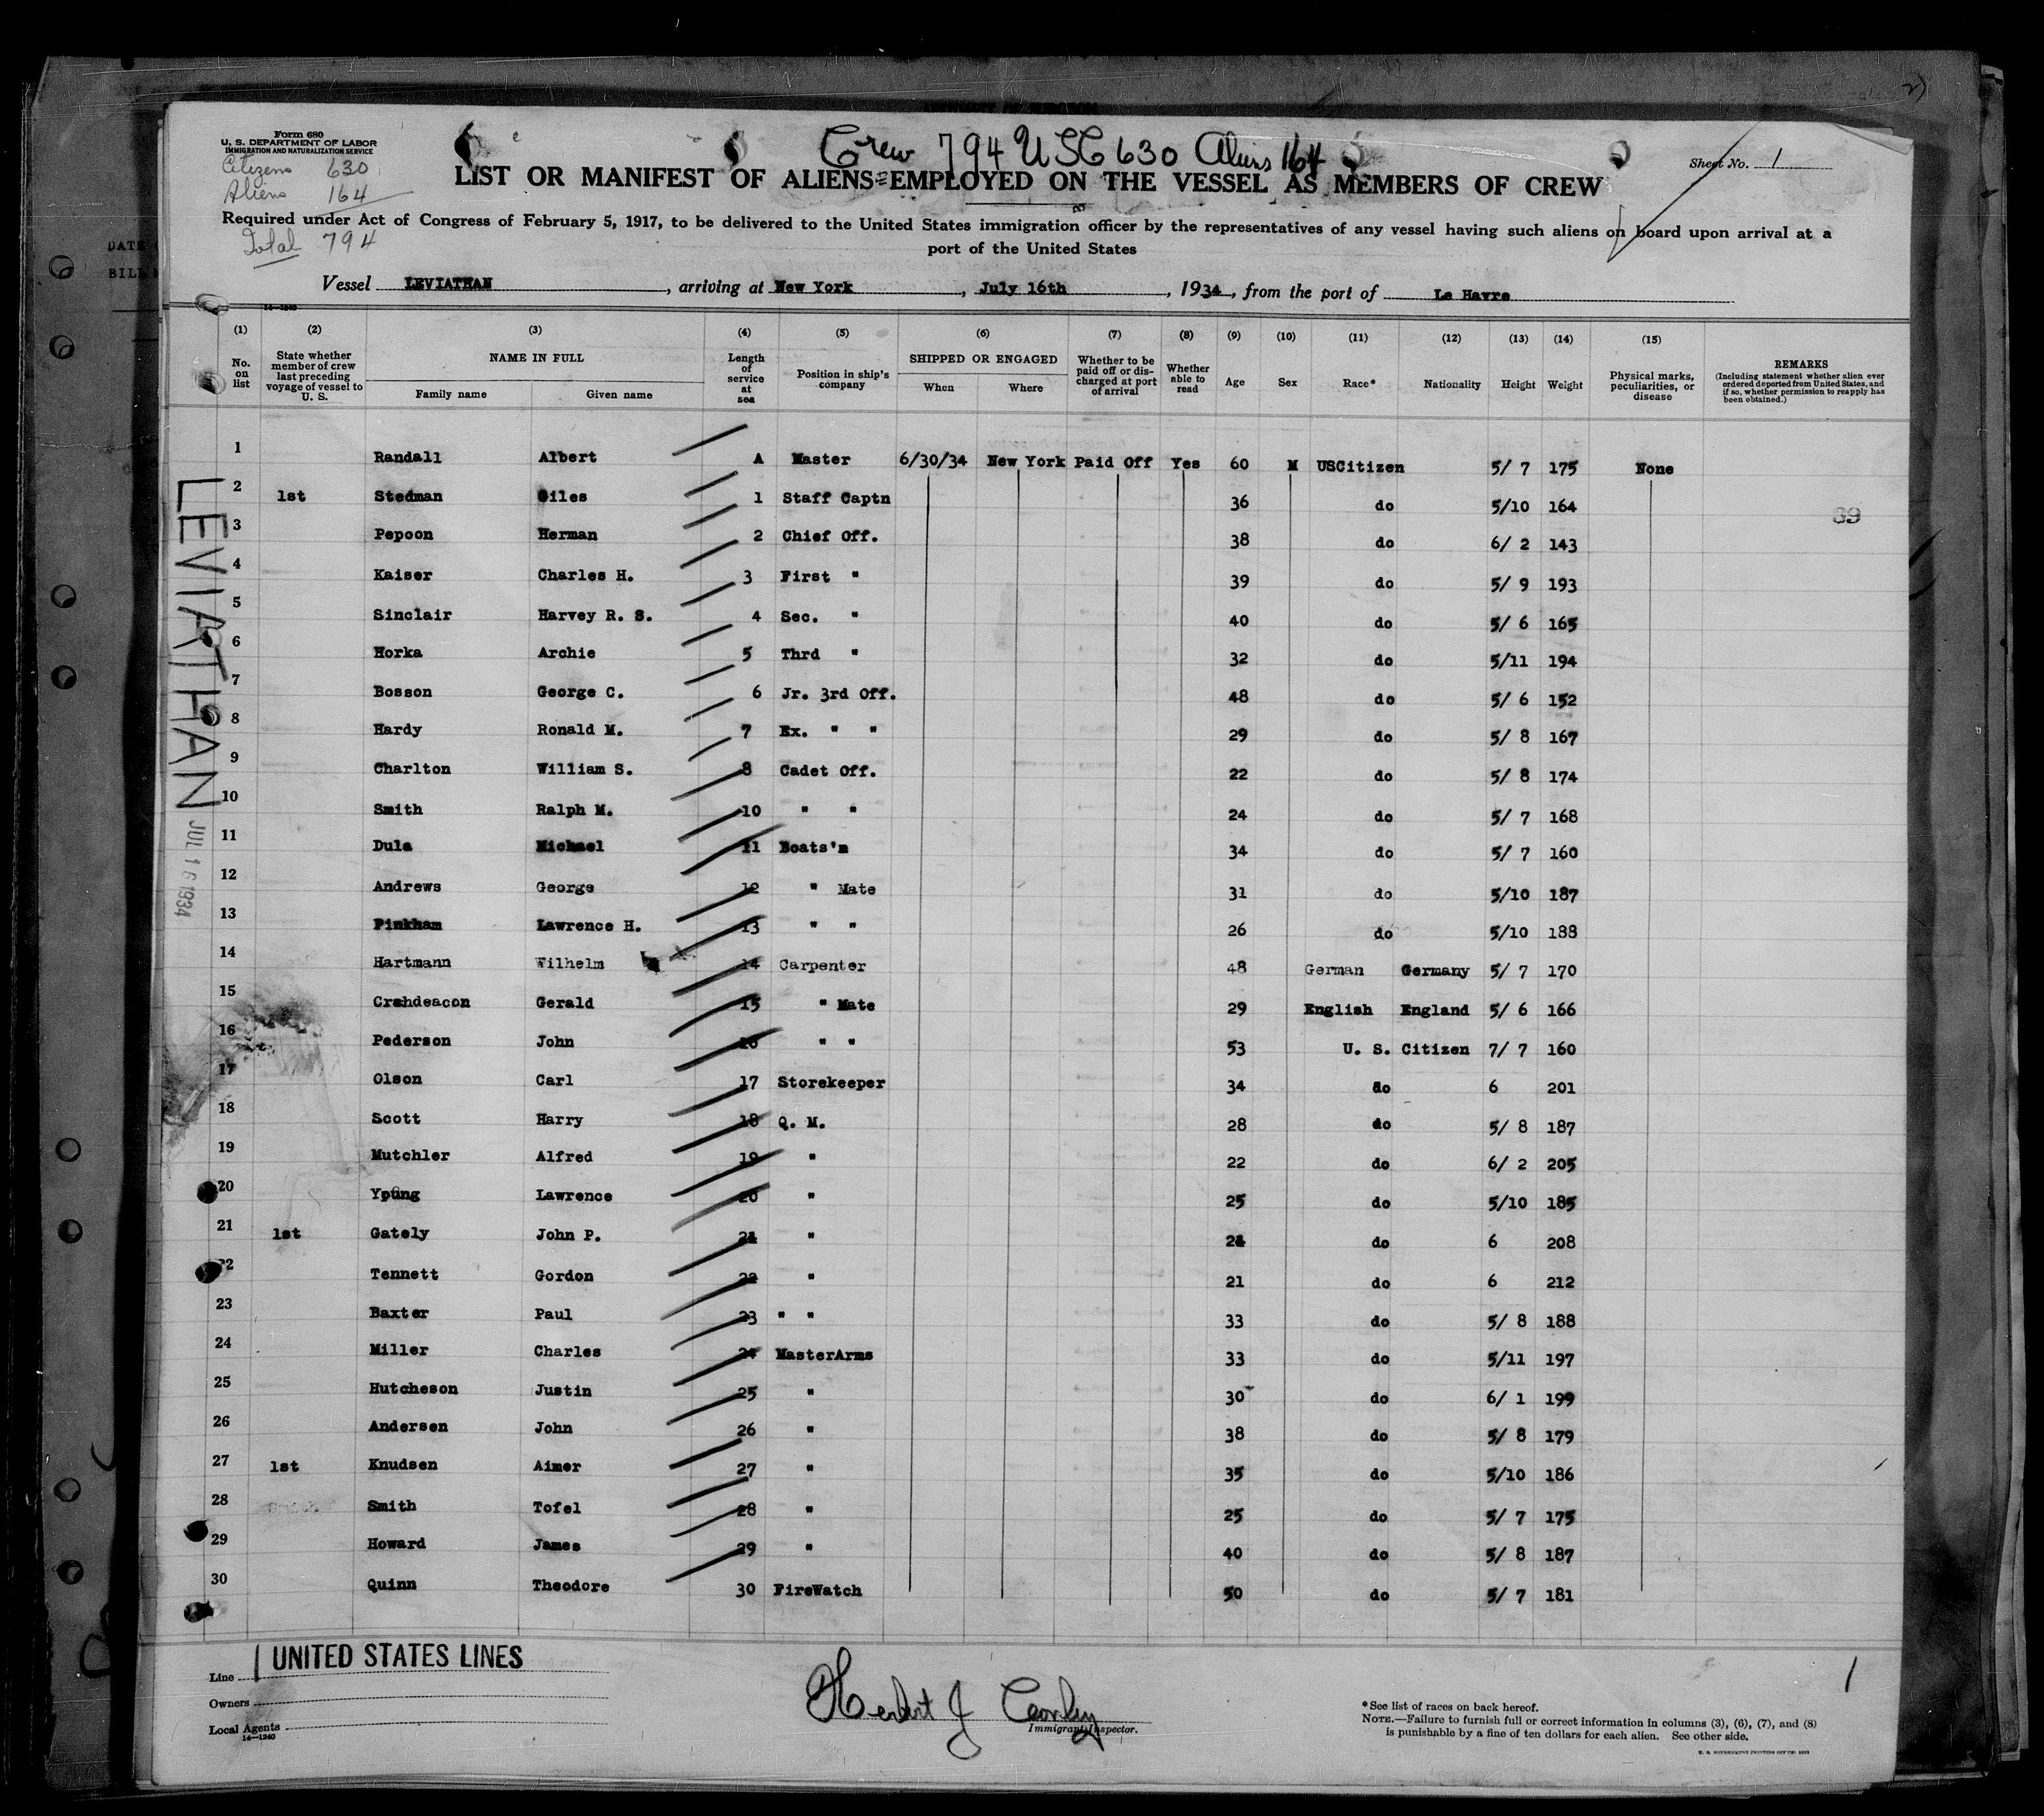 Form 680
U. S. DEPARTMENT OF LABOR
IMMIGRATION AND NATURALIZATION SERVICE
Citizens 630
Aliens 164
Total 794
Crew 794 USC 630 Aliens 164
Sheet No. 1
LIST OR MANIFEST OF ALIENS EMPLOYED ON THE VESSEL AS MEMBERS OF CREW
Required under Act of Congress of February 5, 1917, to be delivered to the United States immigration officer by the representatives of any vessel having such aliens on board upon arrival at a
port of the United States
Vessel LEVIATHAN, arriving at New York, July 16th, 1934, from the port of Le Havre
14—1240
(1) (2) (3) (4) (5) (6) (7) (8) (9) (10) (11) (12) (13) (14) (15)
No. on list
State whether member of crew last preceding voyage of vessel to U. S.
NAME IN FULL
Family name
Given name
Length of service at sea
Position in ship's company
SHIPPED OR ENGAGED
When
Where
Whether to be paid off or discharged at port of arrival
Whether able to read
Age
Sex
Race*
Nationality
Height
Weight
Physical marks, peculiarities, or disease
REMARKS
(Including statement whether alien ever ordered deported from United States, and if so, whether permission to reapply has been obtained.)
1 Randall Albert A Master 6/30/34 New York Paid Off Yes 60 M USCitizen 5/ 7 175 None
2 1st Stedman Giles 1 Staff Captn 36 do 5/10 164
89
3 Pepoon Herman 2 Chief Off. 38 do 6/ 2 143
4 Kaiser Charles H. 3 First " 39 do 5/ 9 193
5 Sinclair Harvey R. S. 4 Sec. " 40 do 5/ 6 165
6 Horka Archie 5 Thrd " 32 do 5/11 194
7 Bosson George C. 6 Jr. 3rd Off. 48 do 5/ 6 152
8 Hardy Ronald M. 7 Ex. " " 29 do 5/ 8 167
9 Charlton William S. 8 Cadet Off. 22 do 5/ 8 174
10 Smith Ralph M. 10 " " 24 do 5/ 7 168
11 Dula Michael 11 Boats'n 34 do 5/ 7 160
12 Andrews George 12 " Mate 31 do 5/10 187
13 Pinkham Lawrence H. 13 " " 26 do 5/10 188
14 Hartmann Wilhelm 14 Carpenter 48 German Germany 5/ 7 170
15 Crehdeacon Gerald 15 " Mate 29 English England 5/ 6 166
16 Pederson John 16 " " 53 U. S. Citizen 7/ 7 160
17 Olson Carl 17 Storekeeper 34 do 6 201
18 Scott Harry 18 Q. M. 28 do 5/ 8 187
19 Mutchler Alfred 19 " 22 do 6/ 2 205
20 Young Lawrence 20 " 25 do 5/10 185
21 1st Gately John P. 21 " 21 do 6 208
22 Tennett Gordon 22 " 21 do 6 212
23 Baxter Paul 23 " " 33 do 5/ 8 188
24 Miller Charles 24 MasterArms 33 do 5/11 197
25 Hutcheson Justin 25 " 30 do 6/ 1 199
26 Andersen John 26 " 38 do 5/ 8 179
27 1st Knudsen Aimer 27 " 35 do 5/10 186
28 Smith Tofel 28 " 25 do 5/ 7 175
29 Howard James 29 " 40 do 5/ 8 187
30 Quinn Theodore 30 FireWatch 50 do 5/ 7 181
LEVIATHAN
JUL 16 1934
Line UNITED STATES LINES
Owners
Local Agents
14—1240
Herbert J
Immigrant Inspector.
1
*See list of races on back hereof.
NOTE.—Failure to furnish full or correct information in columns (3), (6), (7), and (8)
is punishable by a fine of ten dollars for each alien. See other side.